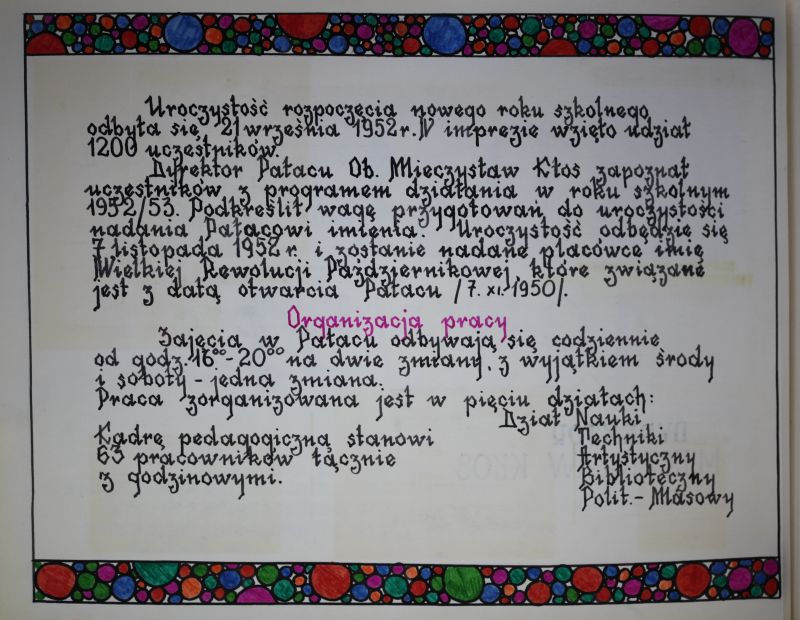 Uroczystość rozpoczęcia nowego roku szkolnego
odbyła się 21 września 1952 r. W imprezie wzięło udział
1200 uczestników.
Dyrektor Pałacu Ob. Mieczysław Kłos zapoznał
uczestników z programem działania w roku szkolnym
1952/53. Podkreślił wagę przygotowań do uroczystości
nadania Pałacowi imienia. Uroczystość odbędzie się
7 listopada 1952 r. i zostanie nadane placówce imię
Wielkiej Rewolucji Październikowej, które związane
jest z datą otwarcia Pałacu /7. XI. 1950/.
Organizacja pracy
Zajęcia w Pałacu odbywają się codziennie
od godz. 16⁰⁰-20⁰⁰ na dwie zmiany, z wyjątkiem środy
i soboty - jedna zmiana.
Praca zorganizowana jest w pięciu działach:
Dział Nauki
Kadrę pedagogiczną stanowi Techniki
63 pracowników łącznie Artystyczny
z godzinowymi. Biblioteczny
Polit.- Masowy